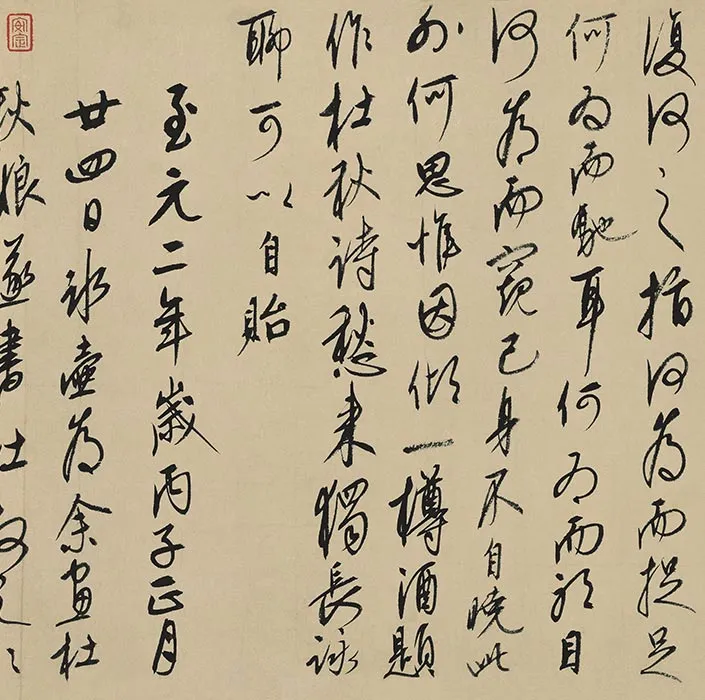 復何之指何為而捉足
何為而馳耳何為而聽目
何為而窺己身不自曉此
外何思惟因傾一樽酒題
作杜秋詩愁来獨長詠
聊可以自貽
至元二年歲丙子正月
廿四日冰壺為余畫杜
秋娘遂書杜牧之